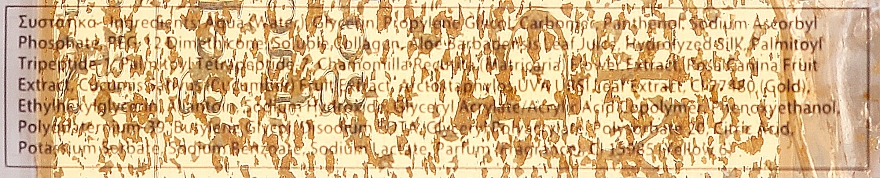 Συστατικά - Ingredients: Aqua (Water), Glycerin, Propylene Glycol, Carbomer, Panthenol, Sodium Ascorbyl
Phosphate, PEG-12 Dimethicone, Soluble Collagen, Aloe Barbadensis Leaf Juice, Hydrolyzed Silk, Palmitoyl
Tripeptide-1, Palmitoyl Tetrapeptide-7, Chamomilla Recutita (Matricaria) Flower Extract, Rosa Canina Fruit
Extract, Cucumis Sativus (Cucumber) Fruit Extract, Arctostaphylos Uva Ursi Leaf Extract, CI 77480 (Gold),
Ethylhexylglycerin, Allantoin, Sodium Hydroxide, Glyceryl Acrylate/Acrylic Acid Copolymer, Phenoxyethanol,
Polyquaternium-39, Butylene Glycol, Disodium EDTA, Glyceryl Polyacrylate, Polysorbate 20, Citric Acid,
Potassium Sorbate, Sodium Benzoate, Sodium Lactate, Parfum (Fragrance), CI 15985 (Yellow 6)